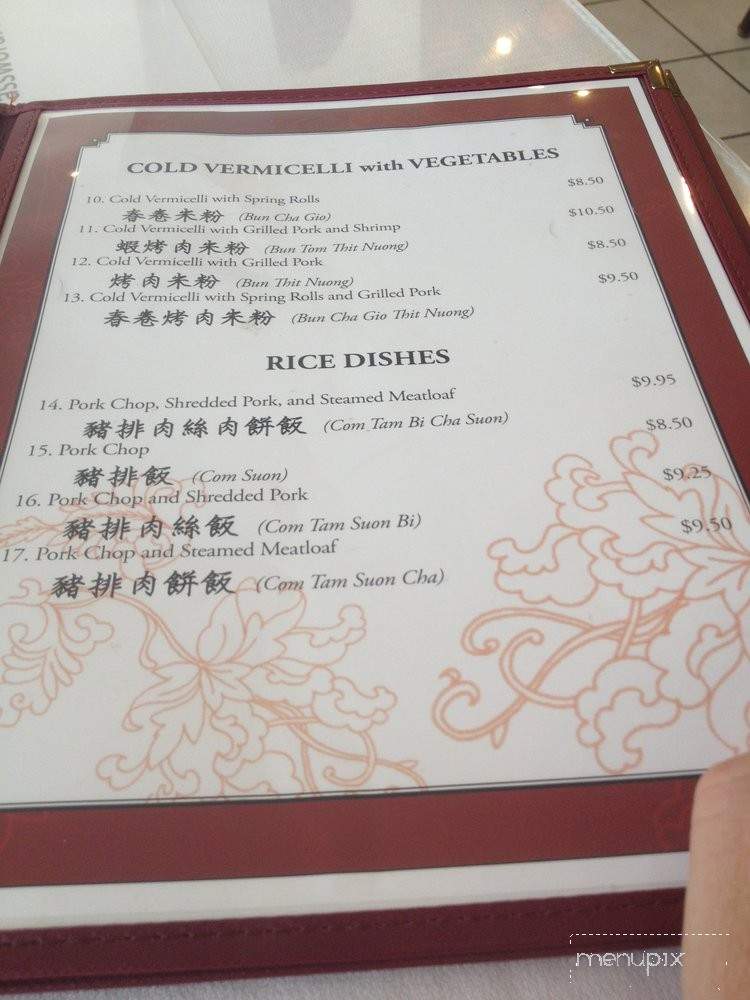 COLD VERMICELLI with VEGETABLES
10. Cold Vermicelli with Spring Rolls $8.50
春卷米粉 (Bun Cha Gio)
11. Cold Vermicelli with Grilled Pork and Shrimp $10.50
蝦烤肉米粉 (Bun Tom Thit Nuong)
12. Cold Vermicelli with Grilled Pork $8.50
烤肉米粉 (Bun Thit Nuong)
13. Cold Vermicelli with Spring Rolls and Grilled Pork $9.50
春卷烤肉米粉 (Bun Cha Gio Thit Nuong)
RICE DISHES
14. Pork Chop, Shredded Pork, and Steamed Meatloaf $9.95
豬排肉絲肉餅飯 (Com Tam Bi Cha Suon)
15. Pork Chop $8.50
豬排飯 (Com Suon)
16. Pork Chop and Shredded Pork $9.25
豬排肉絲飯 (Com Tam Suon Bi)
17. Pork Chop and Steamed Meatloaf $9.50
豬排肉餅飯 (Com Tam Suon Cha)
menupix